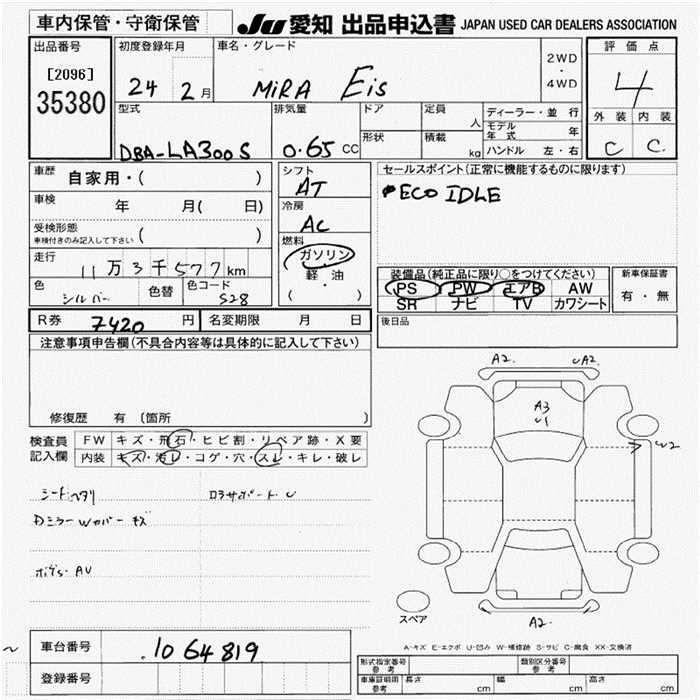 車内保管・守衛保管
JU 愛知 出品申込書 JAPAN USED CAR DEALERS ASSOCIATION
出品番号
[2096]
35380
初度登録年月
24 2月
車名・グレード
MiRA Eis
2WD
・
4WD
評価点
4
外装 内装
C C
型式
DBA-LA300S
排気量
0.65 CC
ドア
形状
定員
人
積載
kg
ディーラー・並行
モデル年式 年
ハンドル 左・右
車歴 自家用・( )
車検 年 月( 日)
受検形態
車検付きのみ記入して下さい ( )
走行
11万3千577km
色
シルバー
色替
色コード
S28
シフト
AT
冷房
AC
燃料
ガソリン
・
軽・油
( )
セールスポイント(正常に機能するものに限ります)
ECO IDLE
装備品(純正品に限り○をつけてください)
PS PW エアB AW
SR ナビ TV カワシート
新車保証書
有・無
R券 7420 円 名変期限 月 日
後日品
注意事項申告欄(不具合内容等は具体的に記入して下さい)
修復歴 有 (箇所 )
検査員
記入欄
FW キズ・飛石・ヒビ割・リペア跡・X要
内装 キズ・汚レ・コゲ・穴・スレ・キレ・破レ
シートヘタリ
ロラサポートU
DミラーWカバーキズ
ボデーAU
A2. UA2.
A3
U1
W2
A2.
スペア
A-キズ E-エクボ U-凹み W-補修跡 S-サビ C-腐食 XX-交換済
車台番号 1064819
登録番号
形式指定番号
参考
類別区分番号
参考
車庫証明用
参考
長さ cm 幅 cm 高さ cm